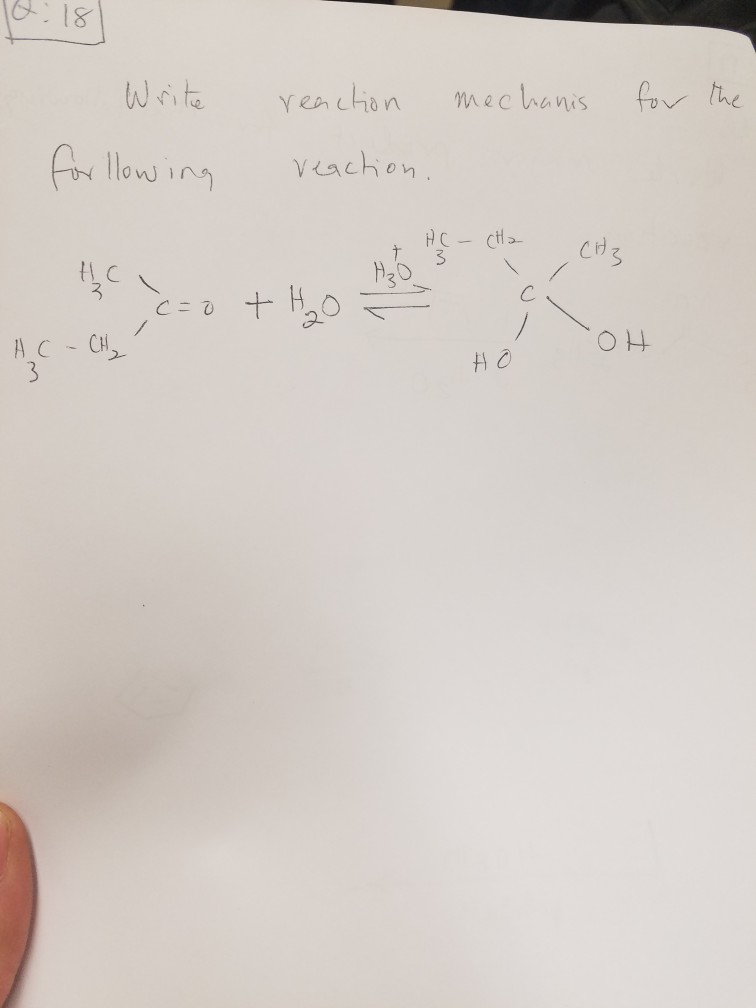 Q: 18
Write reaction mechanis for the
forllowing reaction.
H₃C
C=O + H₂O
H₃C - CH₂
H₃O⁺
⇌
H₃C - CH₂
CH₃
C
HO
OH